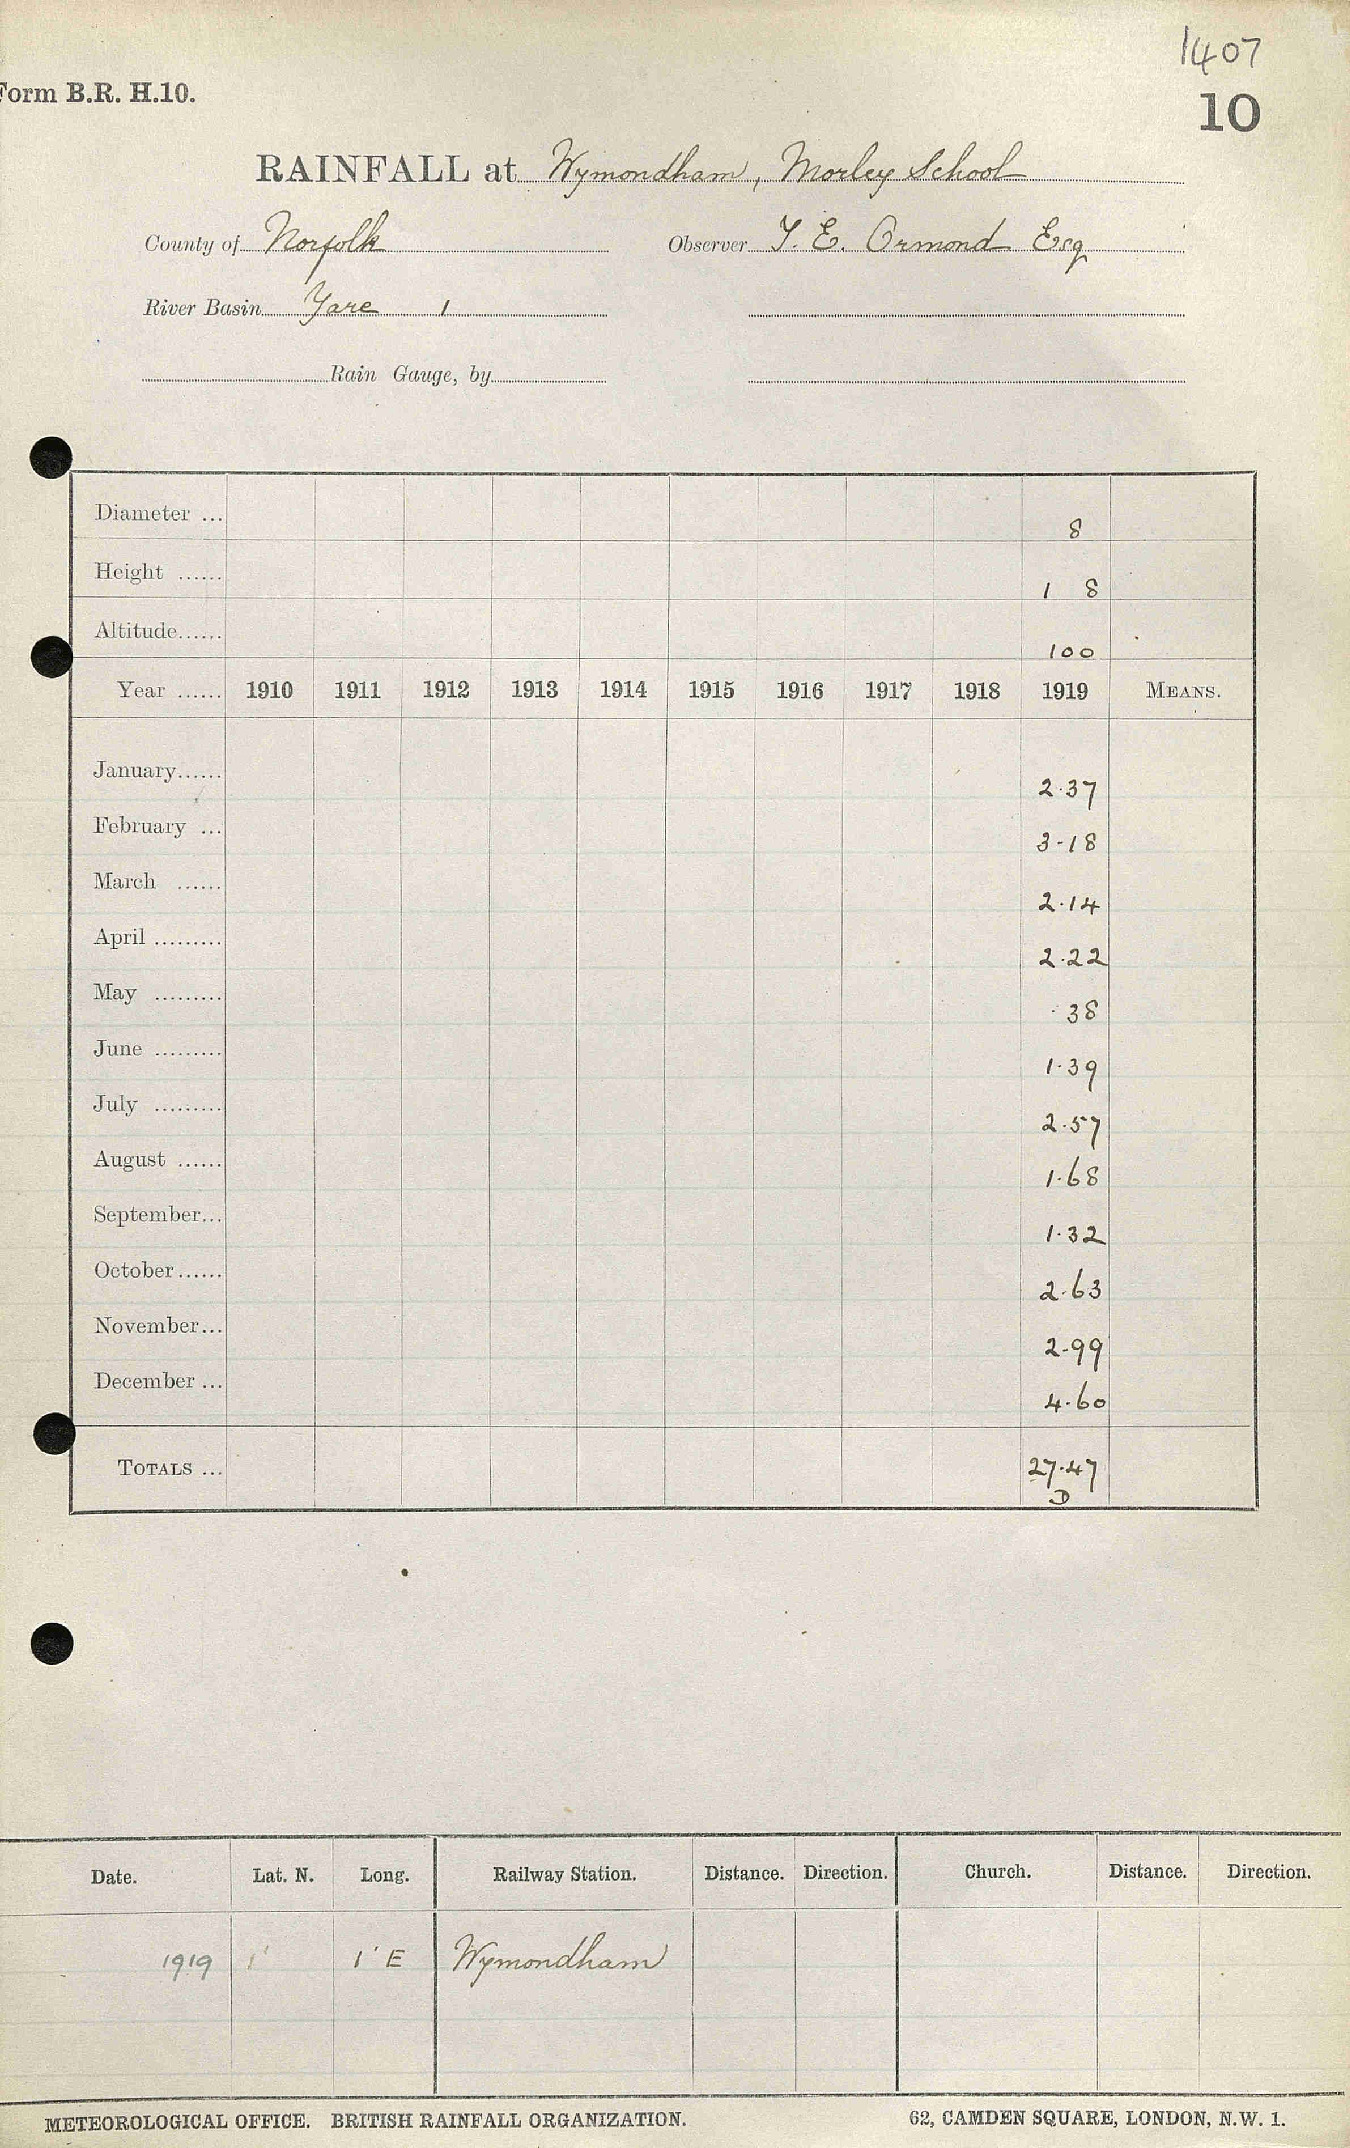 1407
Form B.R. H.10.
10
RAINFALL at Wymondham, Morley School
County of Norfolk Observer T. E. Ormond Esq
River Basin Yare 1
Rain Gauge, by
Diameter ... 8
Height ...... 1 8
Altitude...... 100
Year ...... 1910 1911 1912 1913 1914 1915 1916 1917 1918 1919 MEANS.
January...... 2.37
February ... 3.18
March ...... 2.14
April ......... 2.22
May ......... .38
June ......... 1.39
July ......... 2.57
August ...... 1.68
September... 1.32
October...... 2.63
November... 2.99
December ... 4.60
TOTALS ... 27.47
D
Date. Lat. N. Long. Railway Station. Distance. Direction. Church. Distance. Direction.
1919 1' 1' E Wymondham
METEOROLOGICAL OFFICE. BRITISH RAINFALL ORGANIZATION. 62, CAMDEN SQUARE, LONDON, N.W. 1.